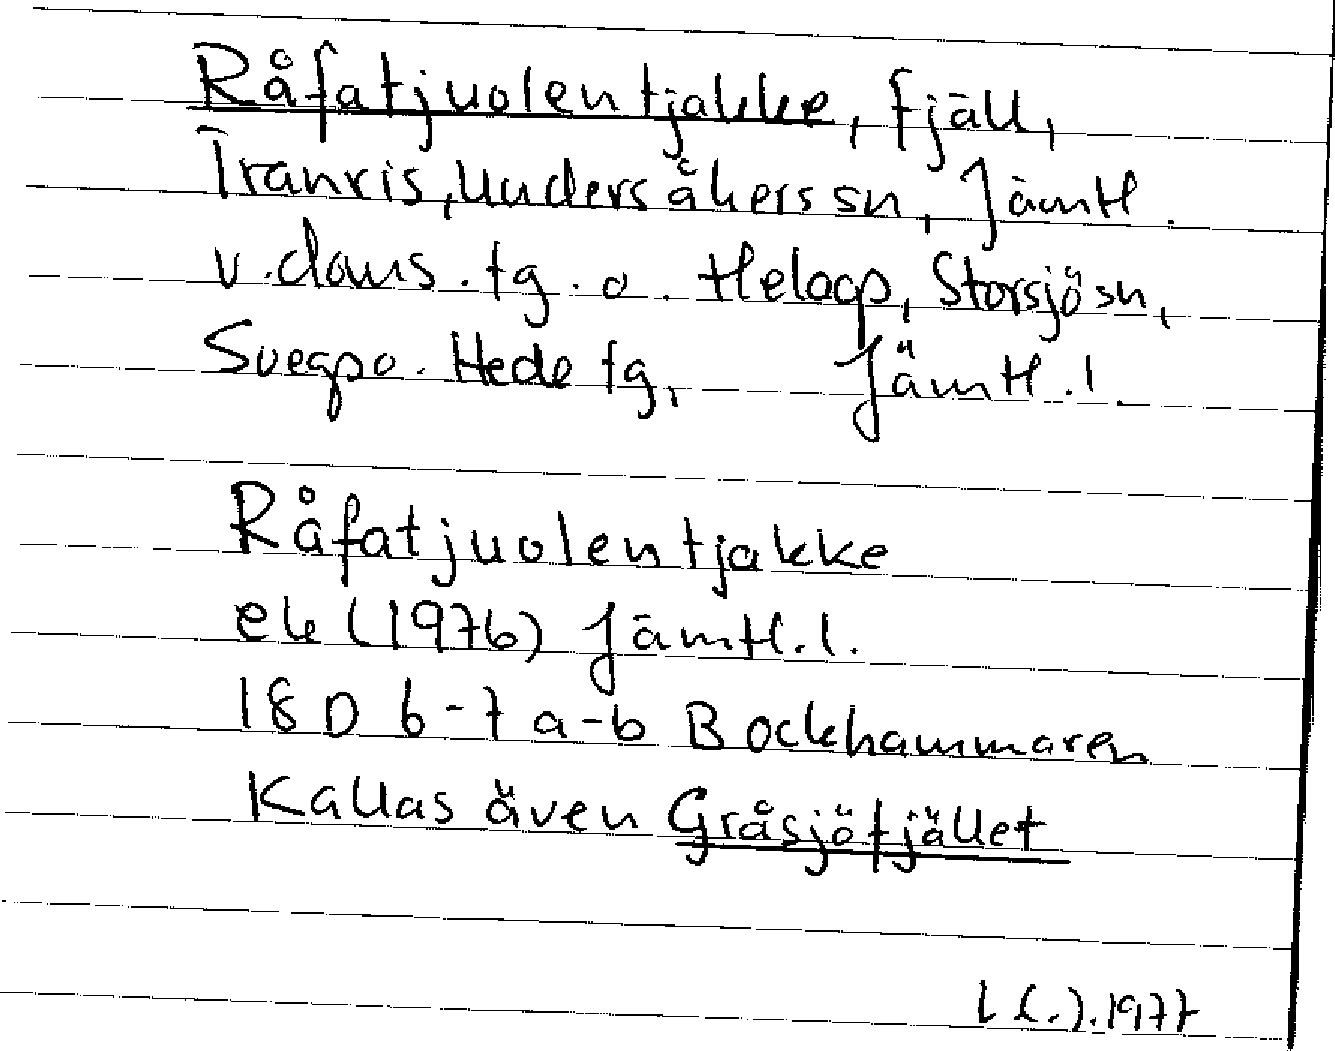 Råfatjuolentjakke, fjäll,
Tranris, Undersåkers sn, Jämtl.
v. doms. tg. o. Helagp, Storsjö sn,
Svegpo. Hede tg, Jämtl. l
Råfatjuolentjakke
ek (1976) Jämtl. l.
18 D 6-7 a-b Bockhammaren
Kallas även Gråsjöfjället
1977